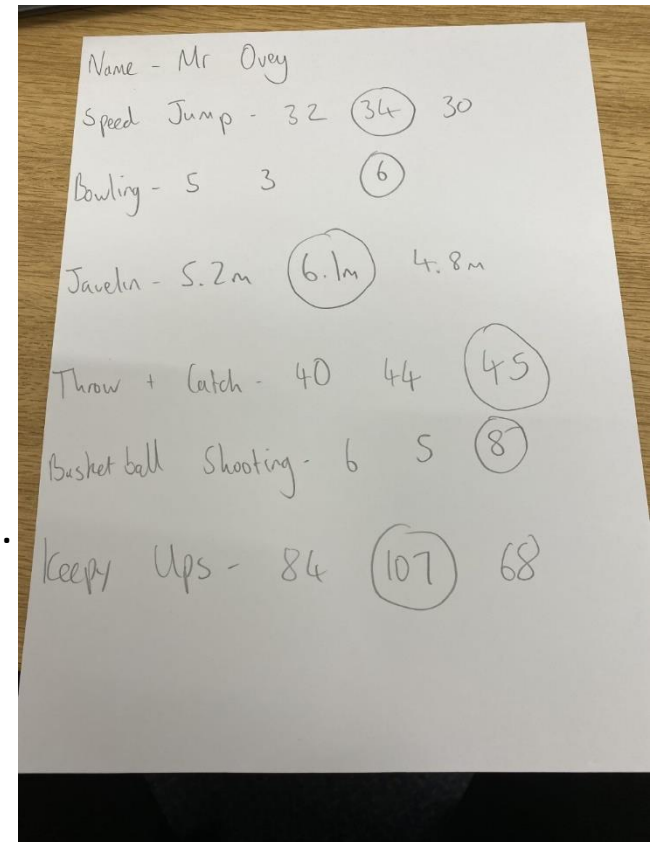 Name - Mr Ovey
Speed Jump - 32 34 30
Bowling - 5 3 6
Javelin - 5.2m 6.1m 4.8m
Throw + Catch - 40 44 45
Basketball Shooting - 6 5 8
Keepy Ups - 84 107 68